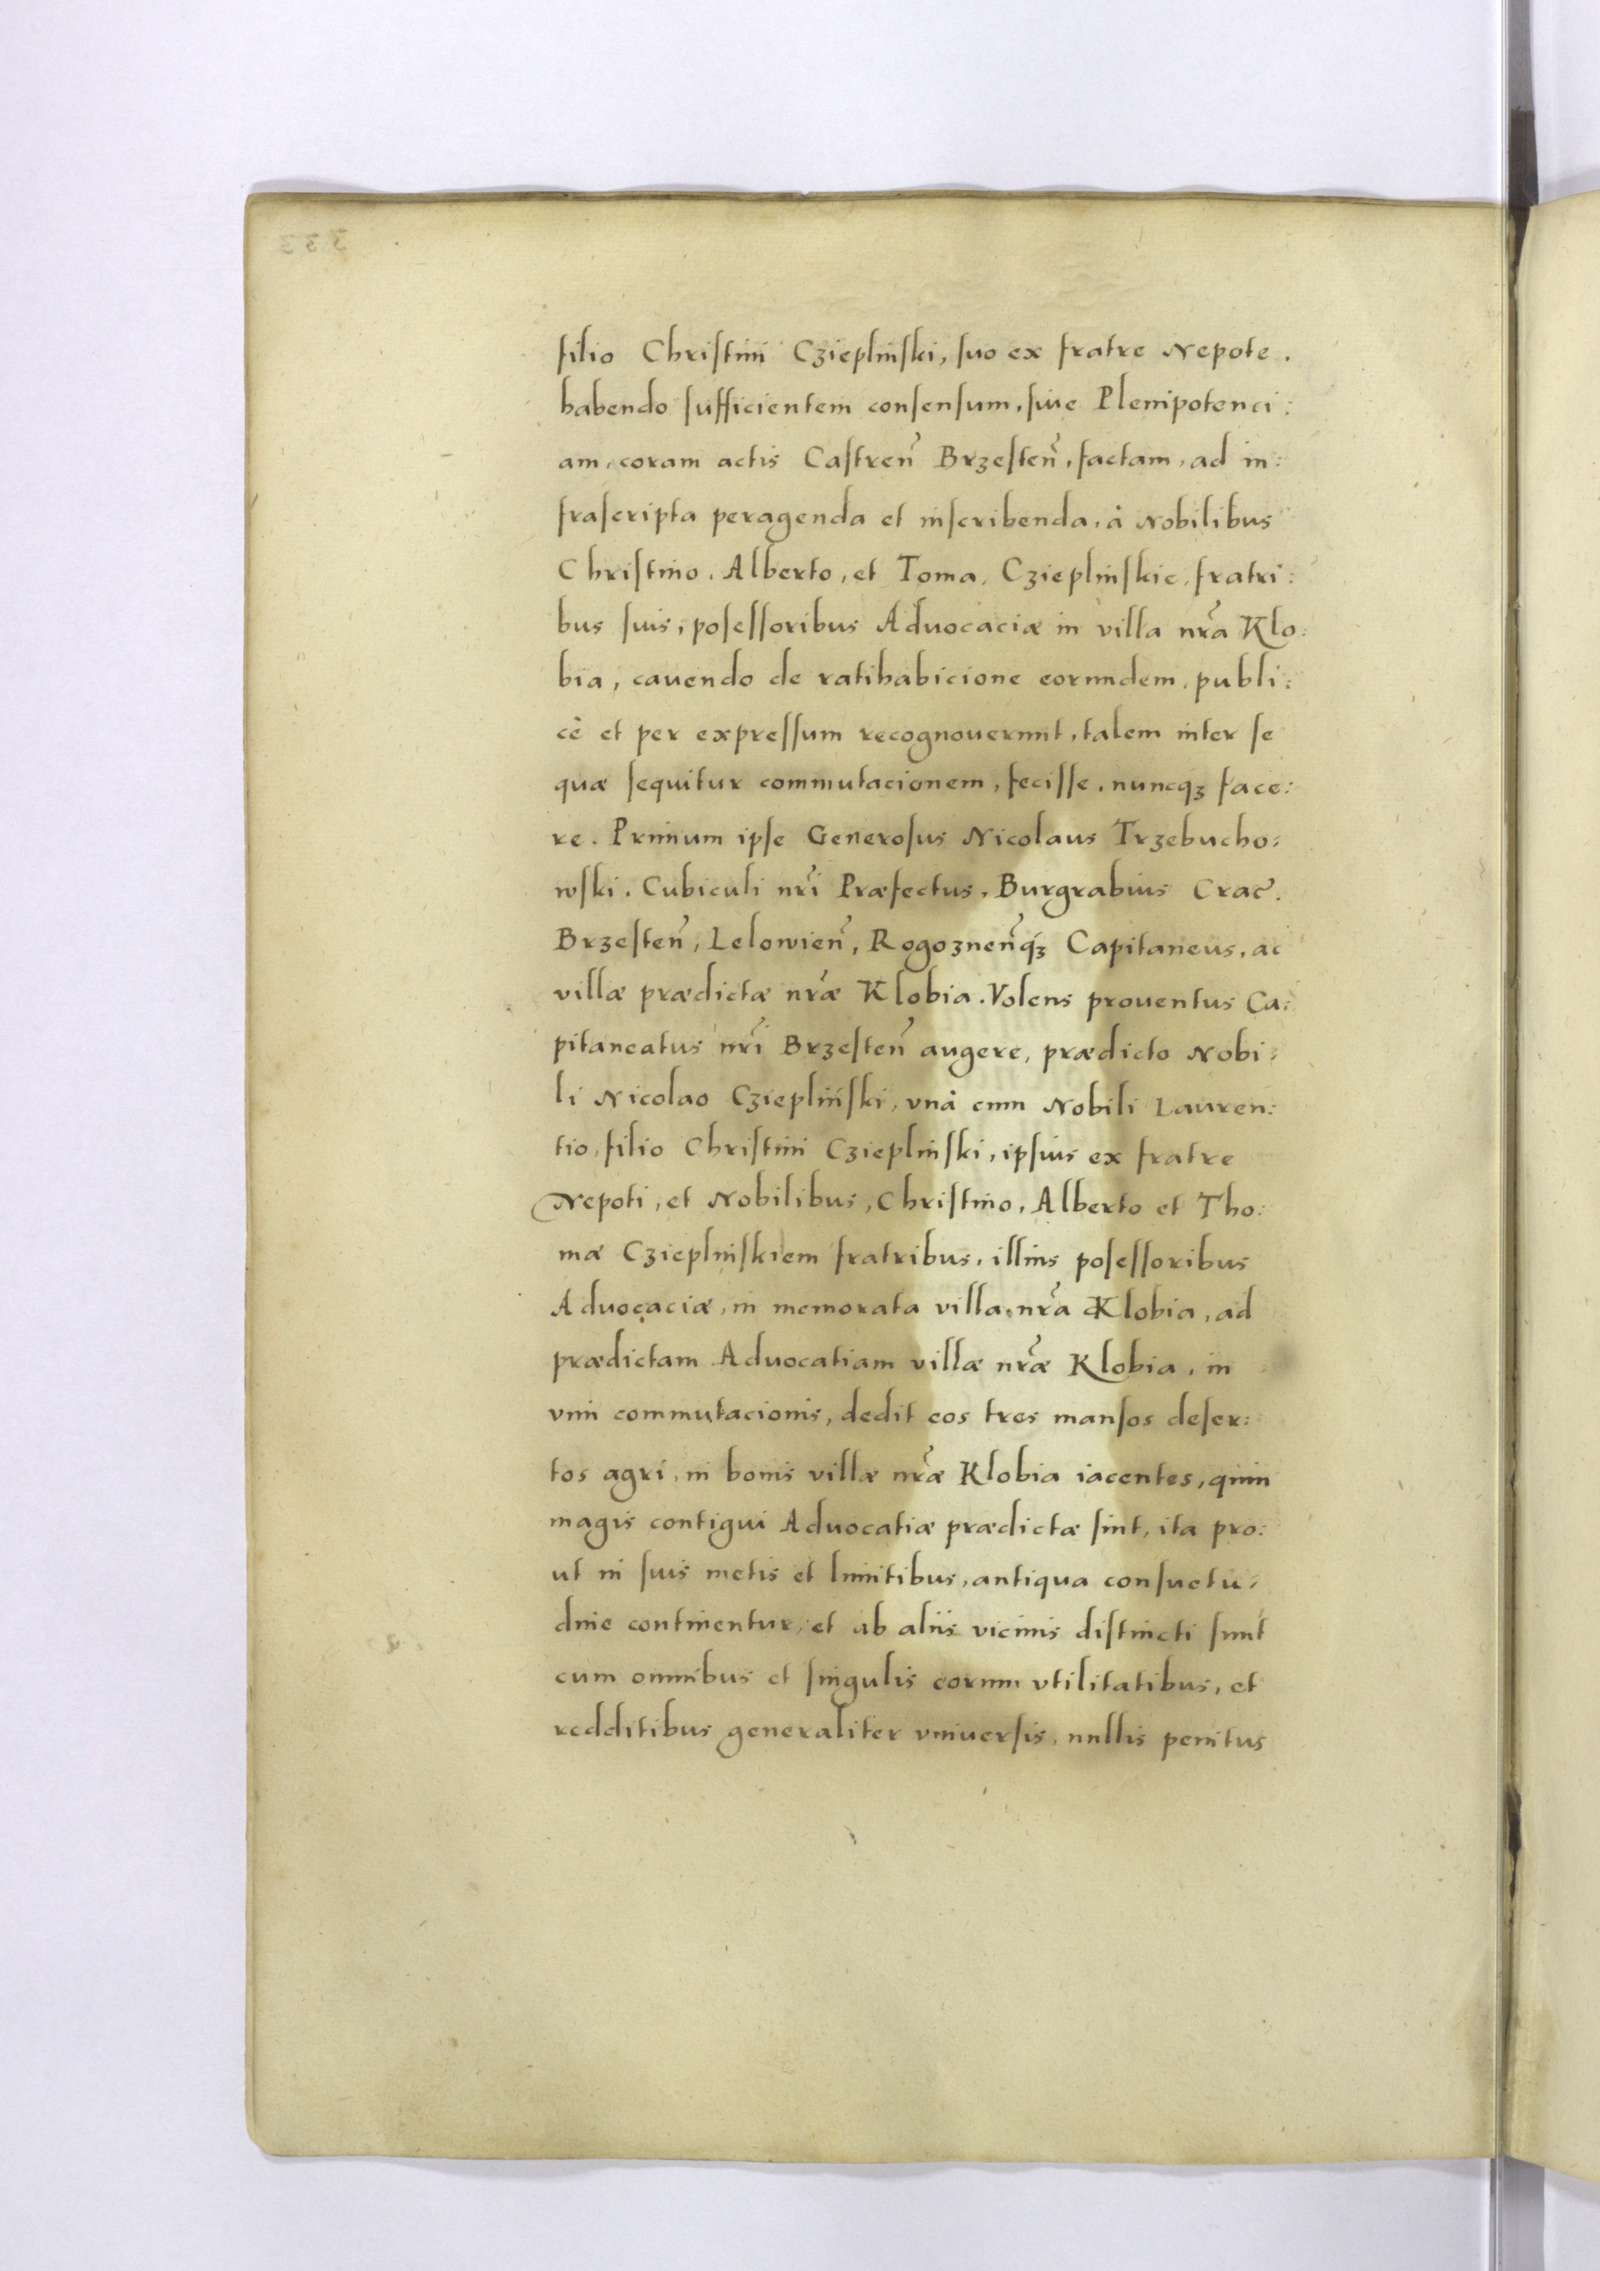 filio Christini Czieplinski, suo ex fratre Nepote.
habendo sufficientem consensum, siue Plenipotenci:
am, coram actis Castren̄ Brzesten̄, factam, ad in:
frascripta peragenda et inscribenda, à Nobilibus
Christino, Alberto, et Toma, Czieplinskie, fratri:
bus suis, posessoribus Aduocaciæ in villa nr̄a Klo:
bia, cauendo de ratihabicione eorundem, publi:
cè et per expressum recognouerunt, talem inter se
quæ sequitur commutacionem, fecisse, nuncq₃ face:
re. Primum ipse Generosus Nicolaus Trzebucho:
wski, Cubiculi nr̄i Præfectus, Burgrabius Crac̄.
Brzesten̄, Lelowien̄, Rogoznen̄q₃ Capitaneus, ac
villæ prædictæ nr̄æ Klobia. Volens prouentus Ca:
pitaneatus nr̄i Brzesten̄ augere, prædicto Nobi:
li Nicolao Czieplinski, vnà cum Nobili Lauren:
tio, filio Christini Czieplinski, ipsius ex fratre
Nepoti, et Nobilibus, Christino, Alberto et Tho:
mæ Czieplinskiem fratribus, illius posessoribus
Aduocaciæ, in memorata villa, nr̄a Klobia, ad
prædictam Aduocatiam villæ nr̄æ Klobia, in
vim commutacionis, dedit eos tres mansos deser:
tos agri, in bonis villæ nr̄æ Klobia iacentes, quin
magis contigui Aduocatiæ prædictæ sint, ita pro:
ut in suis metis et limitibus, antiqua consuetu:
dine continentur, et ab aliis vicinis distincti sunt
cum omnibus et singulis eorum vtilitatibus, et
redditibus generaliter vniuersis, nullis penitus